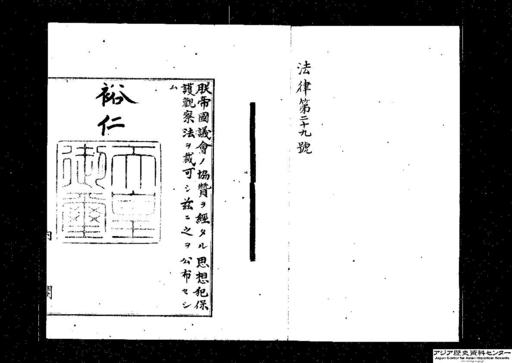 法律第二十九號
朕帝國議會ノ協贊ヲ經タル思想犯保
護觀察法ヲ裁可シ茲ニ之ヲ公布セシ
ム
裕仁
天皇
御璽
内閣
アジア歴史資料センター
Japan Center for Asian Historical Records